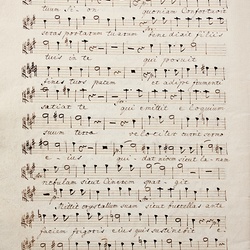 tuum Si on quoniam Confortavit
seras portarum tuarum bene dixit filiis
tuis in te qui posuit
fines tuos pacem et adipe frumenti
satiat te qui emittit eloquium
suum terra velociter currit sermo
eius qui dat nivem sicut lanam
nebulam sicut Cinerem spargit
Mittit crystallum suam sicut buccellas ante
faciem frigoris eius quis sustinebit